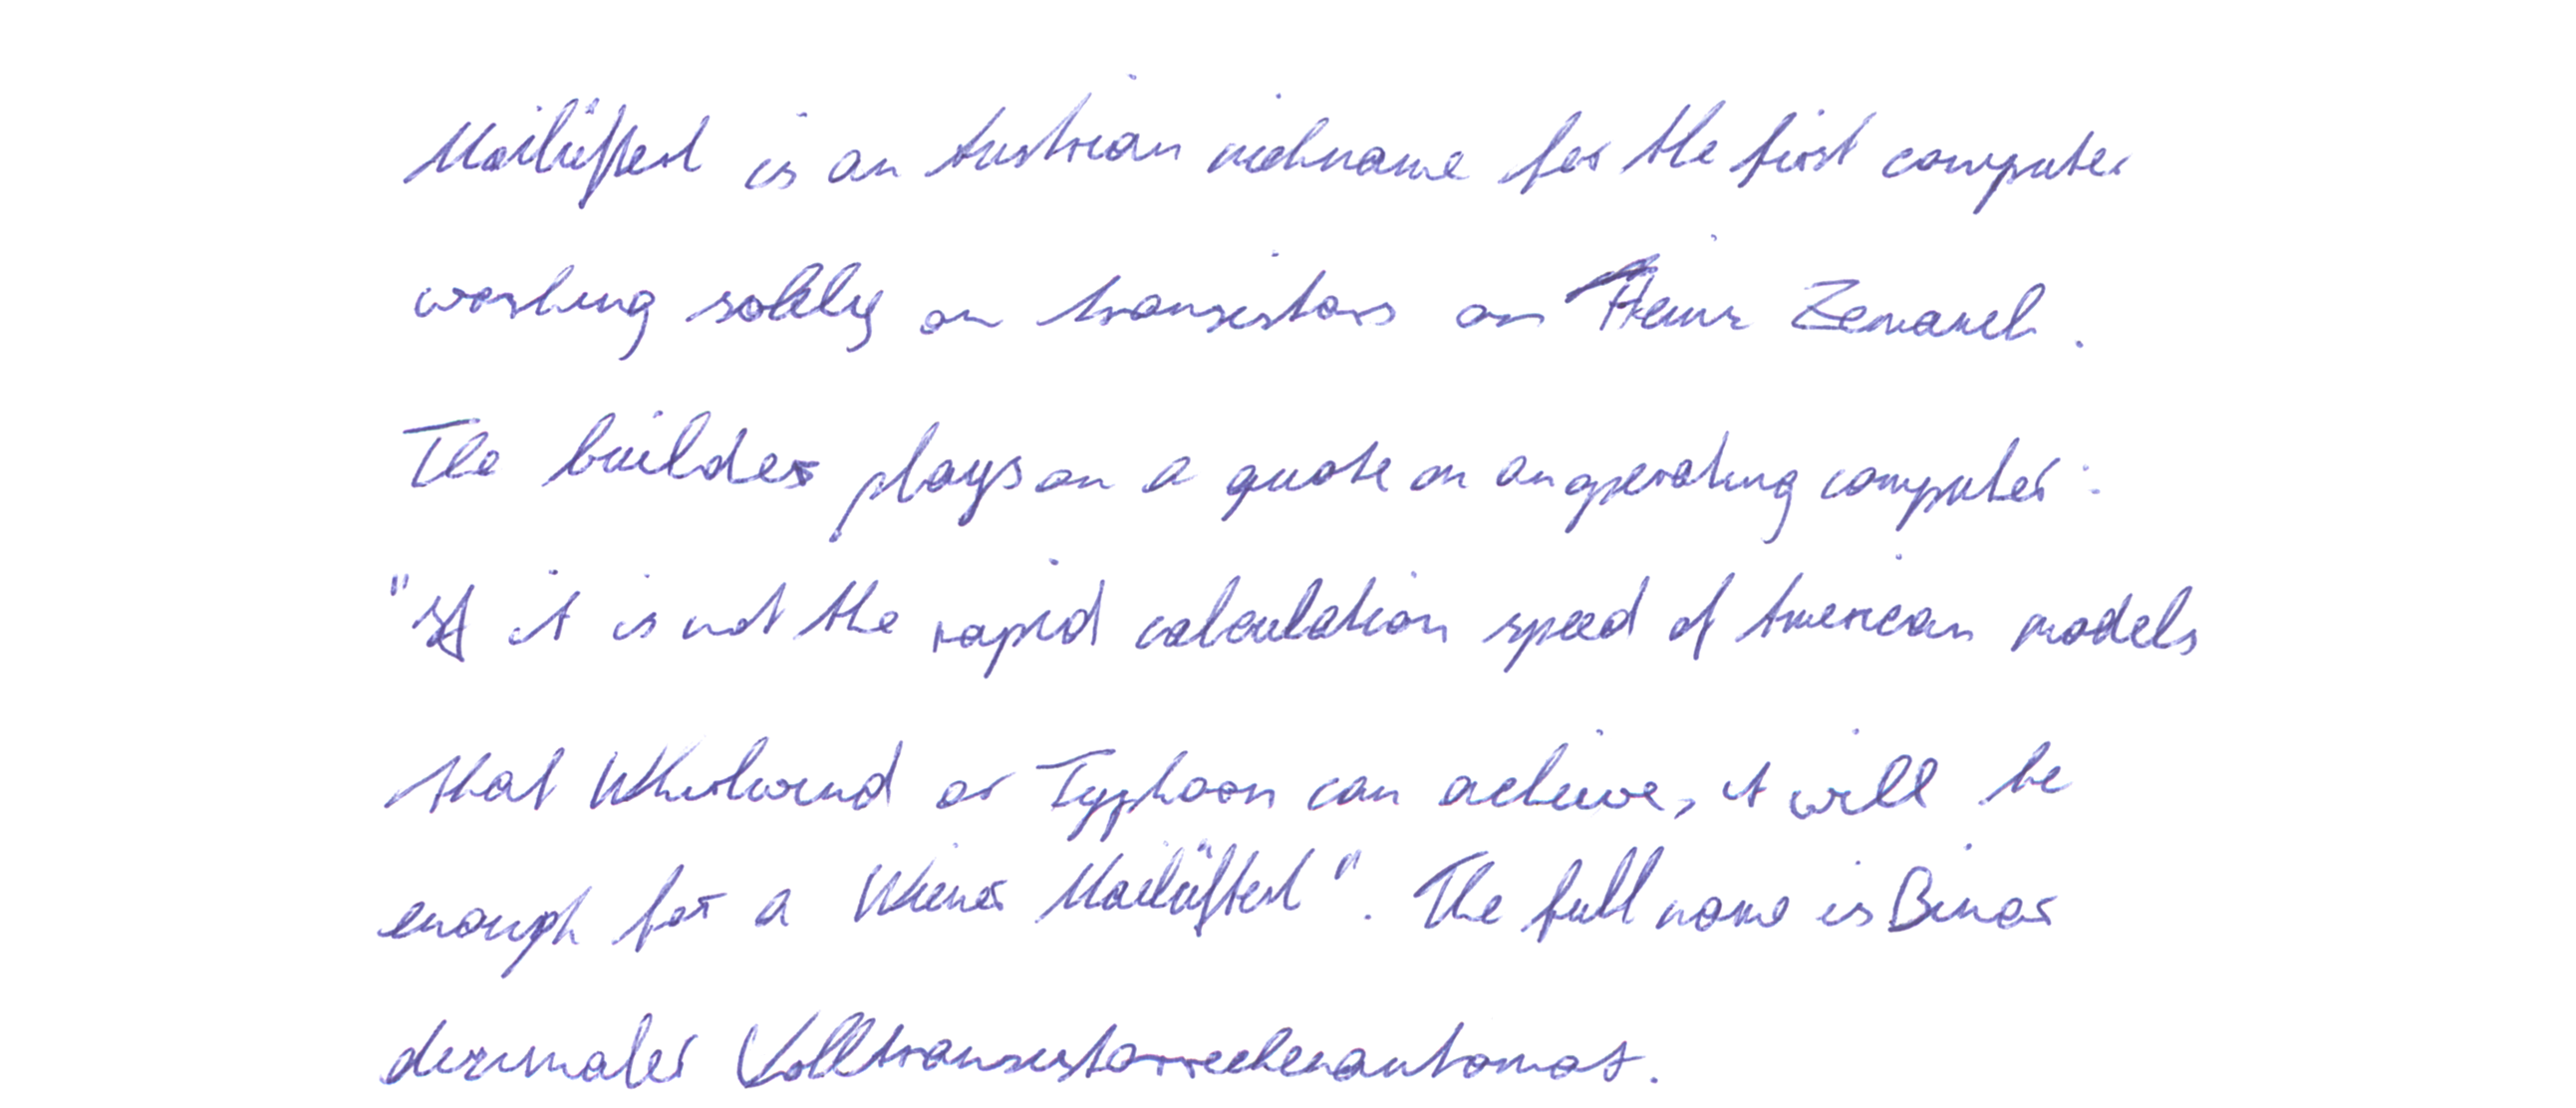 Mailüfterl is an Austrian nickname for the first computer
working solely on transistors on Heinz Zemanek.
The builder plays on a quote on an operating computer:
"If it is not the rapid calculation speed of American models
that Whirlwind or Typhoon can achieve, it will be
enough for a Wiener Mailüfterl". The full name is Binär
dezimaler Volltransistorrechenautomat.